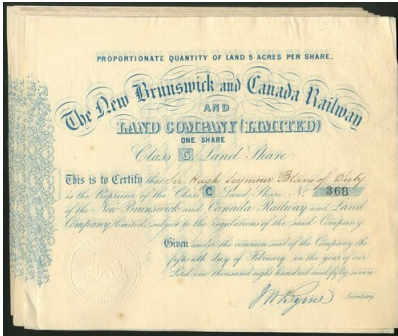 PROPORTIONATE QUANTITY OF LAND 5 ACRES PER SHARE.
The New Brunswick and Canada Railway
AND
LAND COMPANY (LIMITED)
ONE SHARE
Class C Land Share
This is to Certify that Sir Hugh Seymour Blane of Derby
is the Proprietor of the Class C Land Share No. 368
of the New Brunswick and Canada Railway and Land
Company, limited, subject to the regulations of the said Company.
Given under the common seal of the Company the
fifteenth day of February in the year of our
Lord one thousand eight hundred and fifty seven.
J W Byrne Secretary